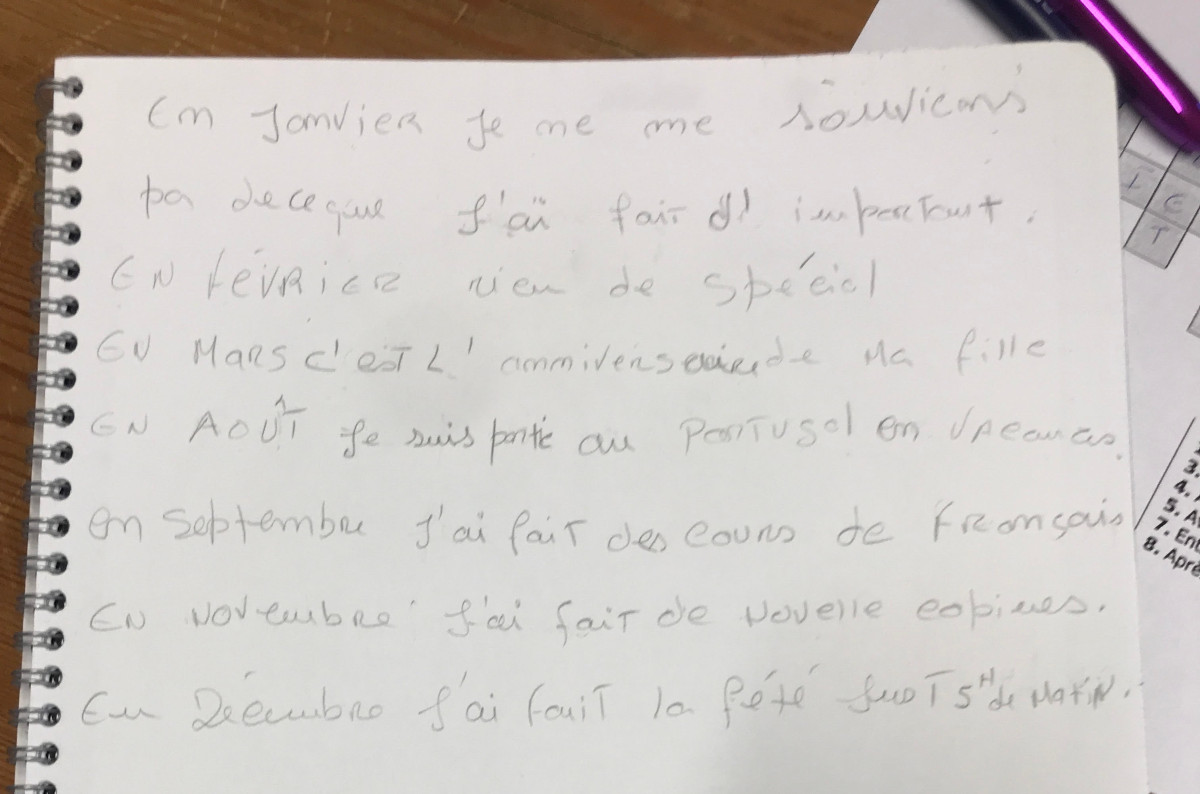 En Janvier Je ne me souviens
pa de ceque J'ai fait d' important.
EN FÉVRIER rien de spécial
EN MARS c'est L' anniversaire de Ma fille
EN AOÛT Je suis partie au PORTUGAL en vacances.
en septembre J'ai fait des cours de Français
EN NOVembre J'ai fait de Nouvelle copines.
En Décembre J'ai fait la fété 5H de MATIN.
I E
T
3.
4. A
5. Au
7. Ent
8. Aprè